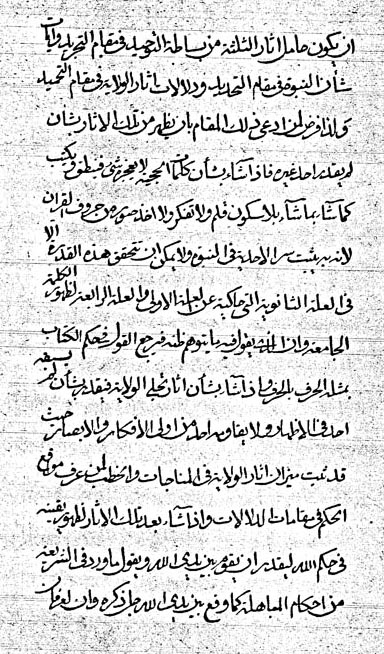 ان يكون حامل اثار الثلثة من بساطة التوحيد فى مقام التجريد وايات
شأن النبوة فى مقام التحديد ودلالات اثار الولاية فى مقام التحميد
ولذا فرض لمن ادعى ذلك المقام بان يظهر من تلك الاثار بشأن
لم يقدر احد غيره فاذا شاء بشأن كلمات الحجية لا يعجزه شئ فينطق ويكتب
كما شاء بما شاء بلا سكون قلم ولا تفكر ولا اخذ صورة من حروف القران
لانه به يثبت سر الاحدية فى النبوة ولا يمكن ان يتحقق هذه القدرة الا
فى العلة الثانوية التى حاكية عن العلة الاولى والعلة الرابعة لظهور الكلمة
الجامعة وان يقول فيه ما يتوهم ظنه فيرجع القول فى حكم الكتاب
بمثله الحرف بالحرف واذا شاء بشأن اثار تجلى الولاية فيقدر بشأن لم يسبقه
احد فى الاظهار ولا يقاومه احد من اولى الافكار والابصار حيث
قد ثبت ميزان اثار الولاية فى المناجات والخطب لمن عرف مواقع
الحكم فى مقامات الدلالات واذا شاء بعد تلك الاثار لظهور يقينه
فى حكم الله ليقدر ان يقوم بين يدى الله ويقول ما ورد فى الشريعة
من احكام المباهلة كما وقع بين يدى الله جل ذكره وان لعرفان